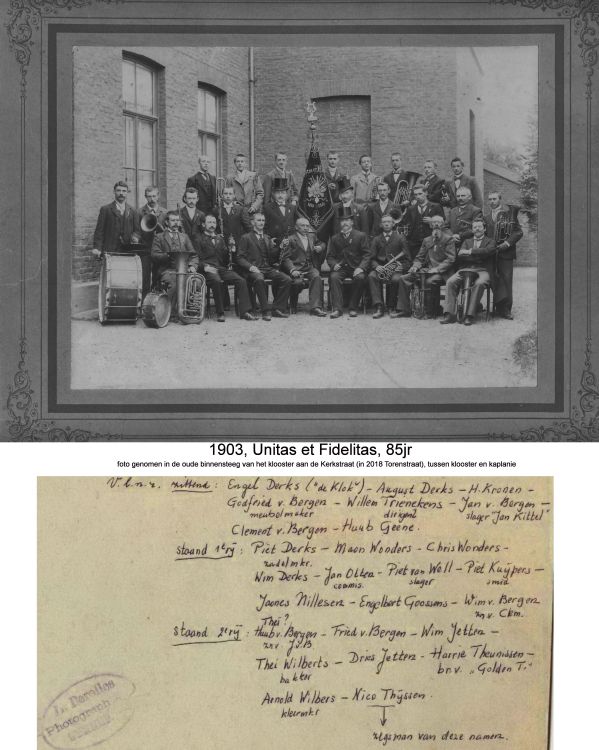 1903, Unitas et Fidelitas, 85jr
foto genomen in de oude binnensteeg van het klooster aan de Kerkstraat (in 2018 Torenstraat), tussen klooster en kaplanie
V.l.n.r. zittend: Engel Derks ("de Klok") - August Derks - H. Kronen -
Godfried v. Bergen - Willem Trienekens - Jan v. Bergen -
meubelmaker dirigent slager "Jan Kittel"
Clement v. Bergen - Huub Geene.
staand 1e rij: Piet Derks - Maan Wonders - Chris Wonders -
zadelmkr.
Wim Derks - Jan Otten - Piet van Well - Piet Kuijpers -
commis. slager smid
Jannes Nillesen - Engelbert Goossens - Wim v. Bergen
Thei? zn v. Clem.
staand 2e rij: Huub v. Bergen - Fried v. Bergen - Wim Jetten -
zn v. J.v.B.
Thei Wilberts - Dries Jetten - Harrie Theunissen -
bakker br. v. "Golden T."
Arnold Wilbers - Nico Thijssen.
kleermkr
zegsman van deze namen.
Photograph